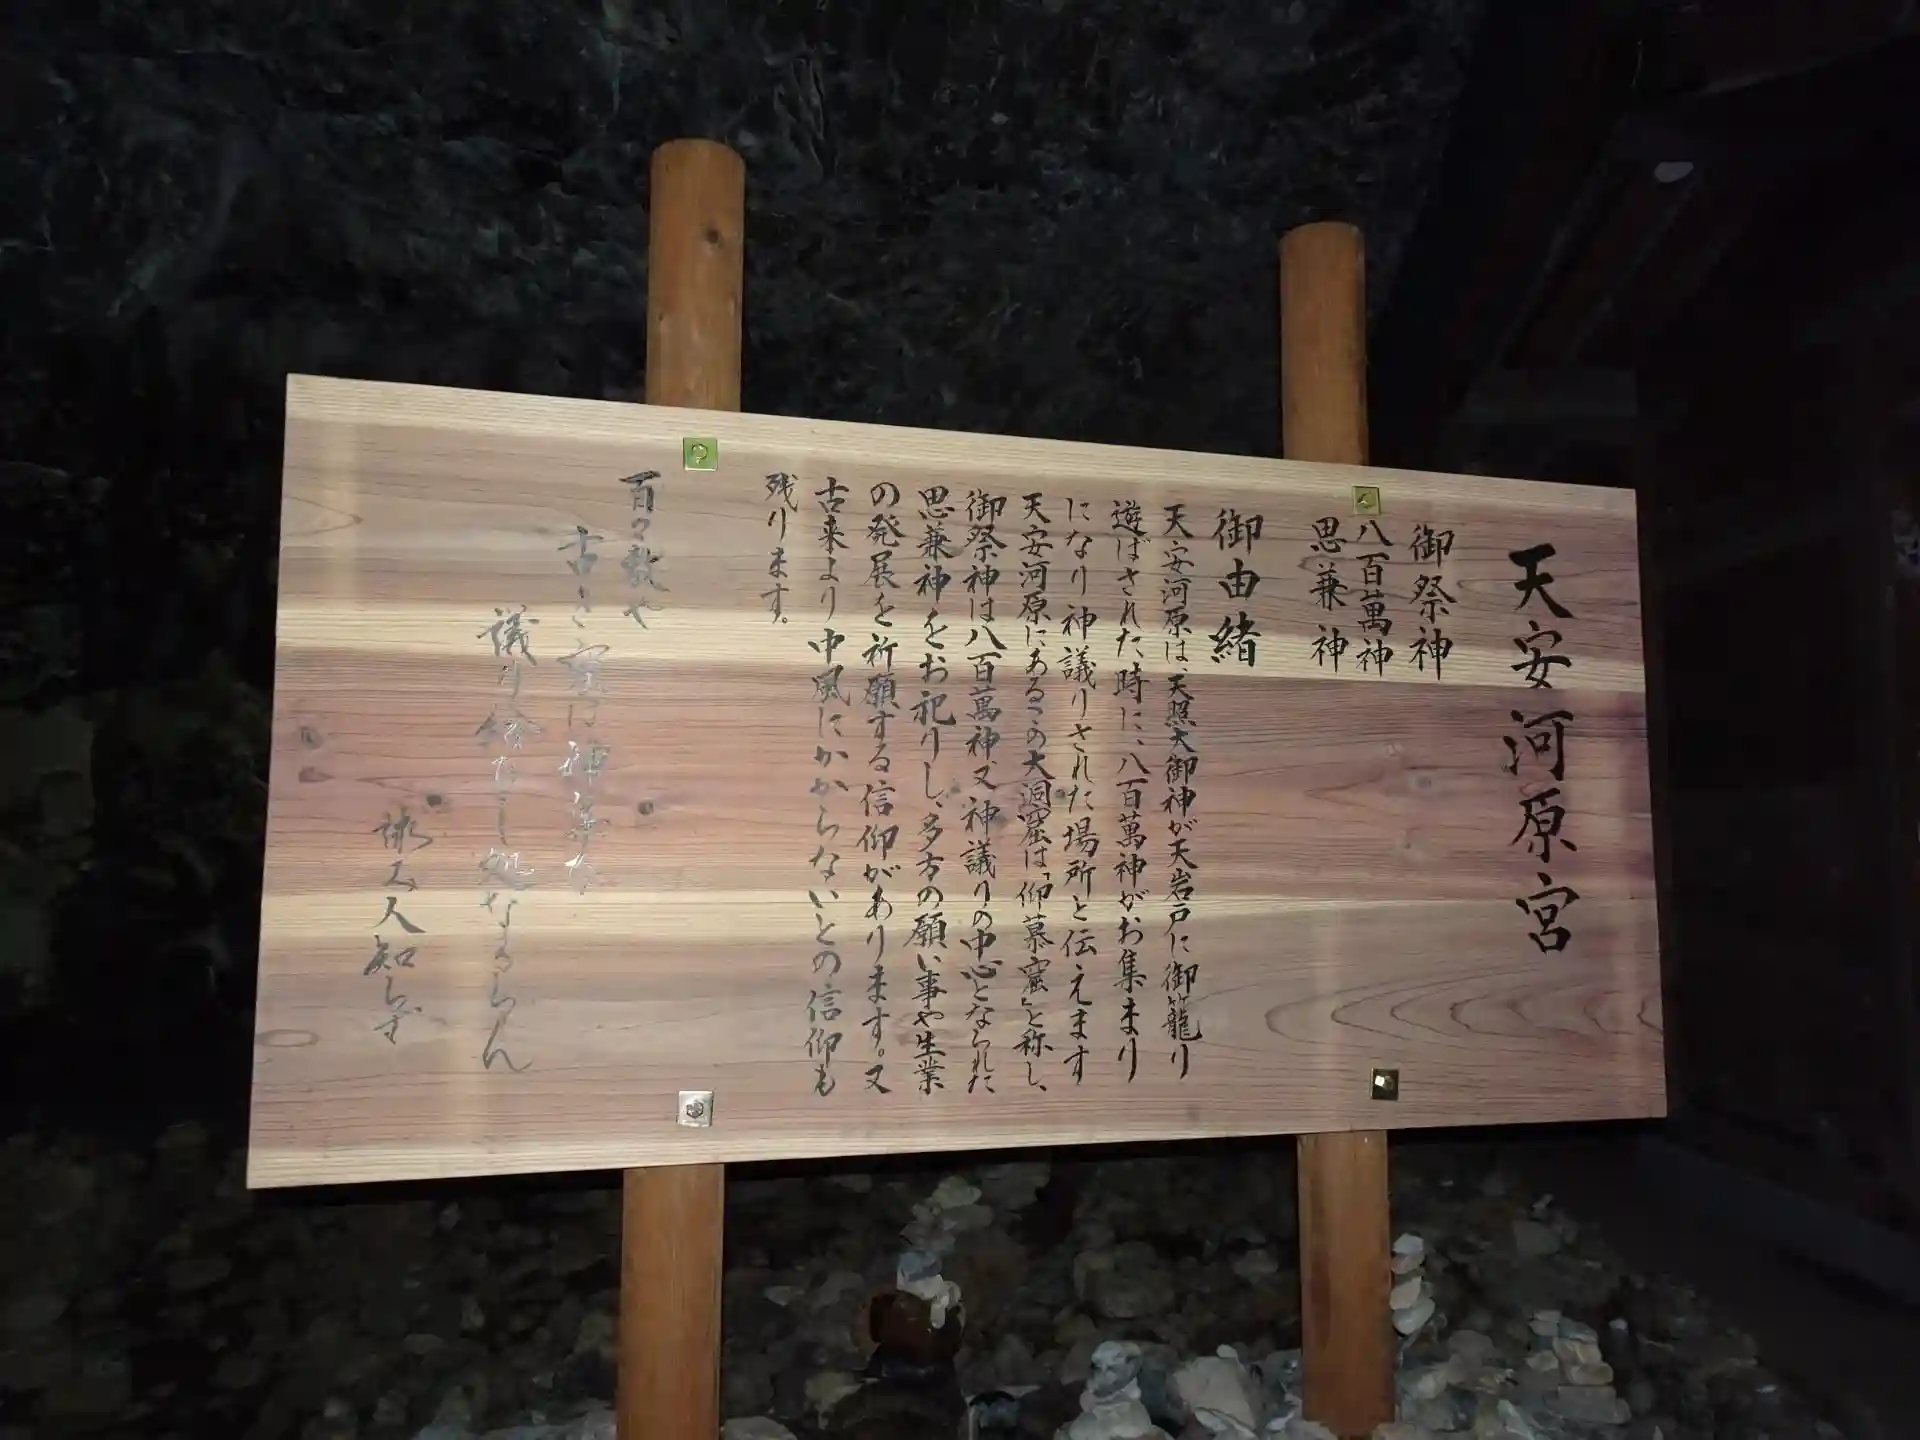 天安河原宮
御祭神
八百萬神
思兼神
御由緒
天安河原は、天照大御神が天岩戸に御籠り
遊ばされた時に、八百萬神がお集まり
になり神議りされた場所と伝えます
天安河原にあるこの大洞窟は「仰慕窟」と称し、
御祭神は八百萬神又神議りの中心となられた
思兼神をお祀りし、多方の願い事や生業
の発展を祈願する信仰があります。又
古来より中風にかからないとの信仰も
残ります。
百々敷や
古き窟は神集ひ
議り給たまし処なるらん
詠み人知らず